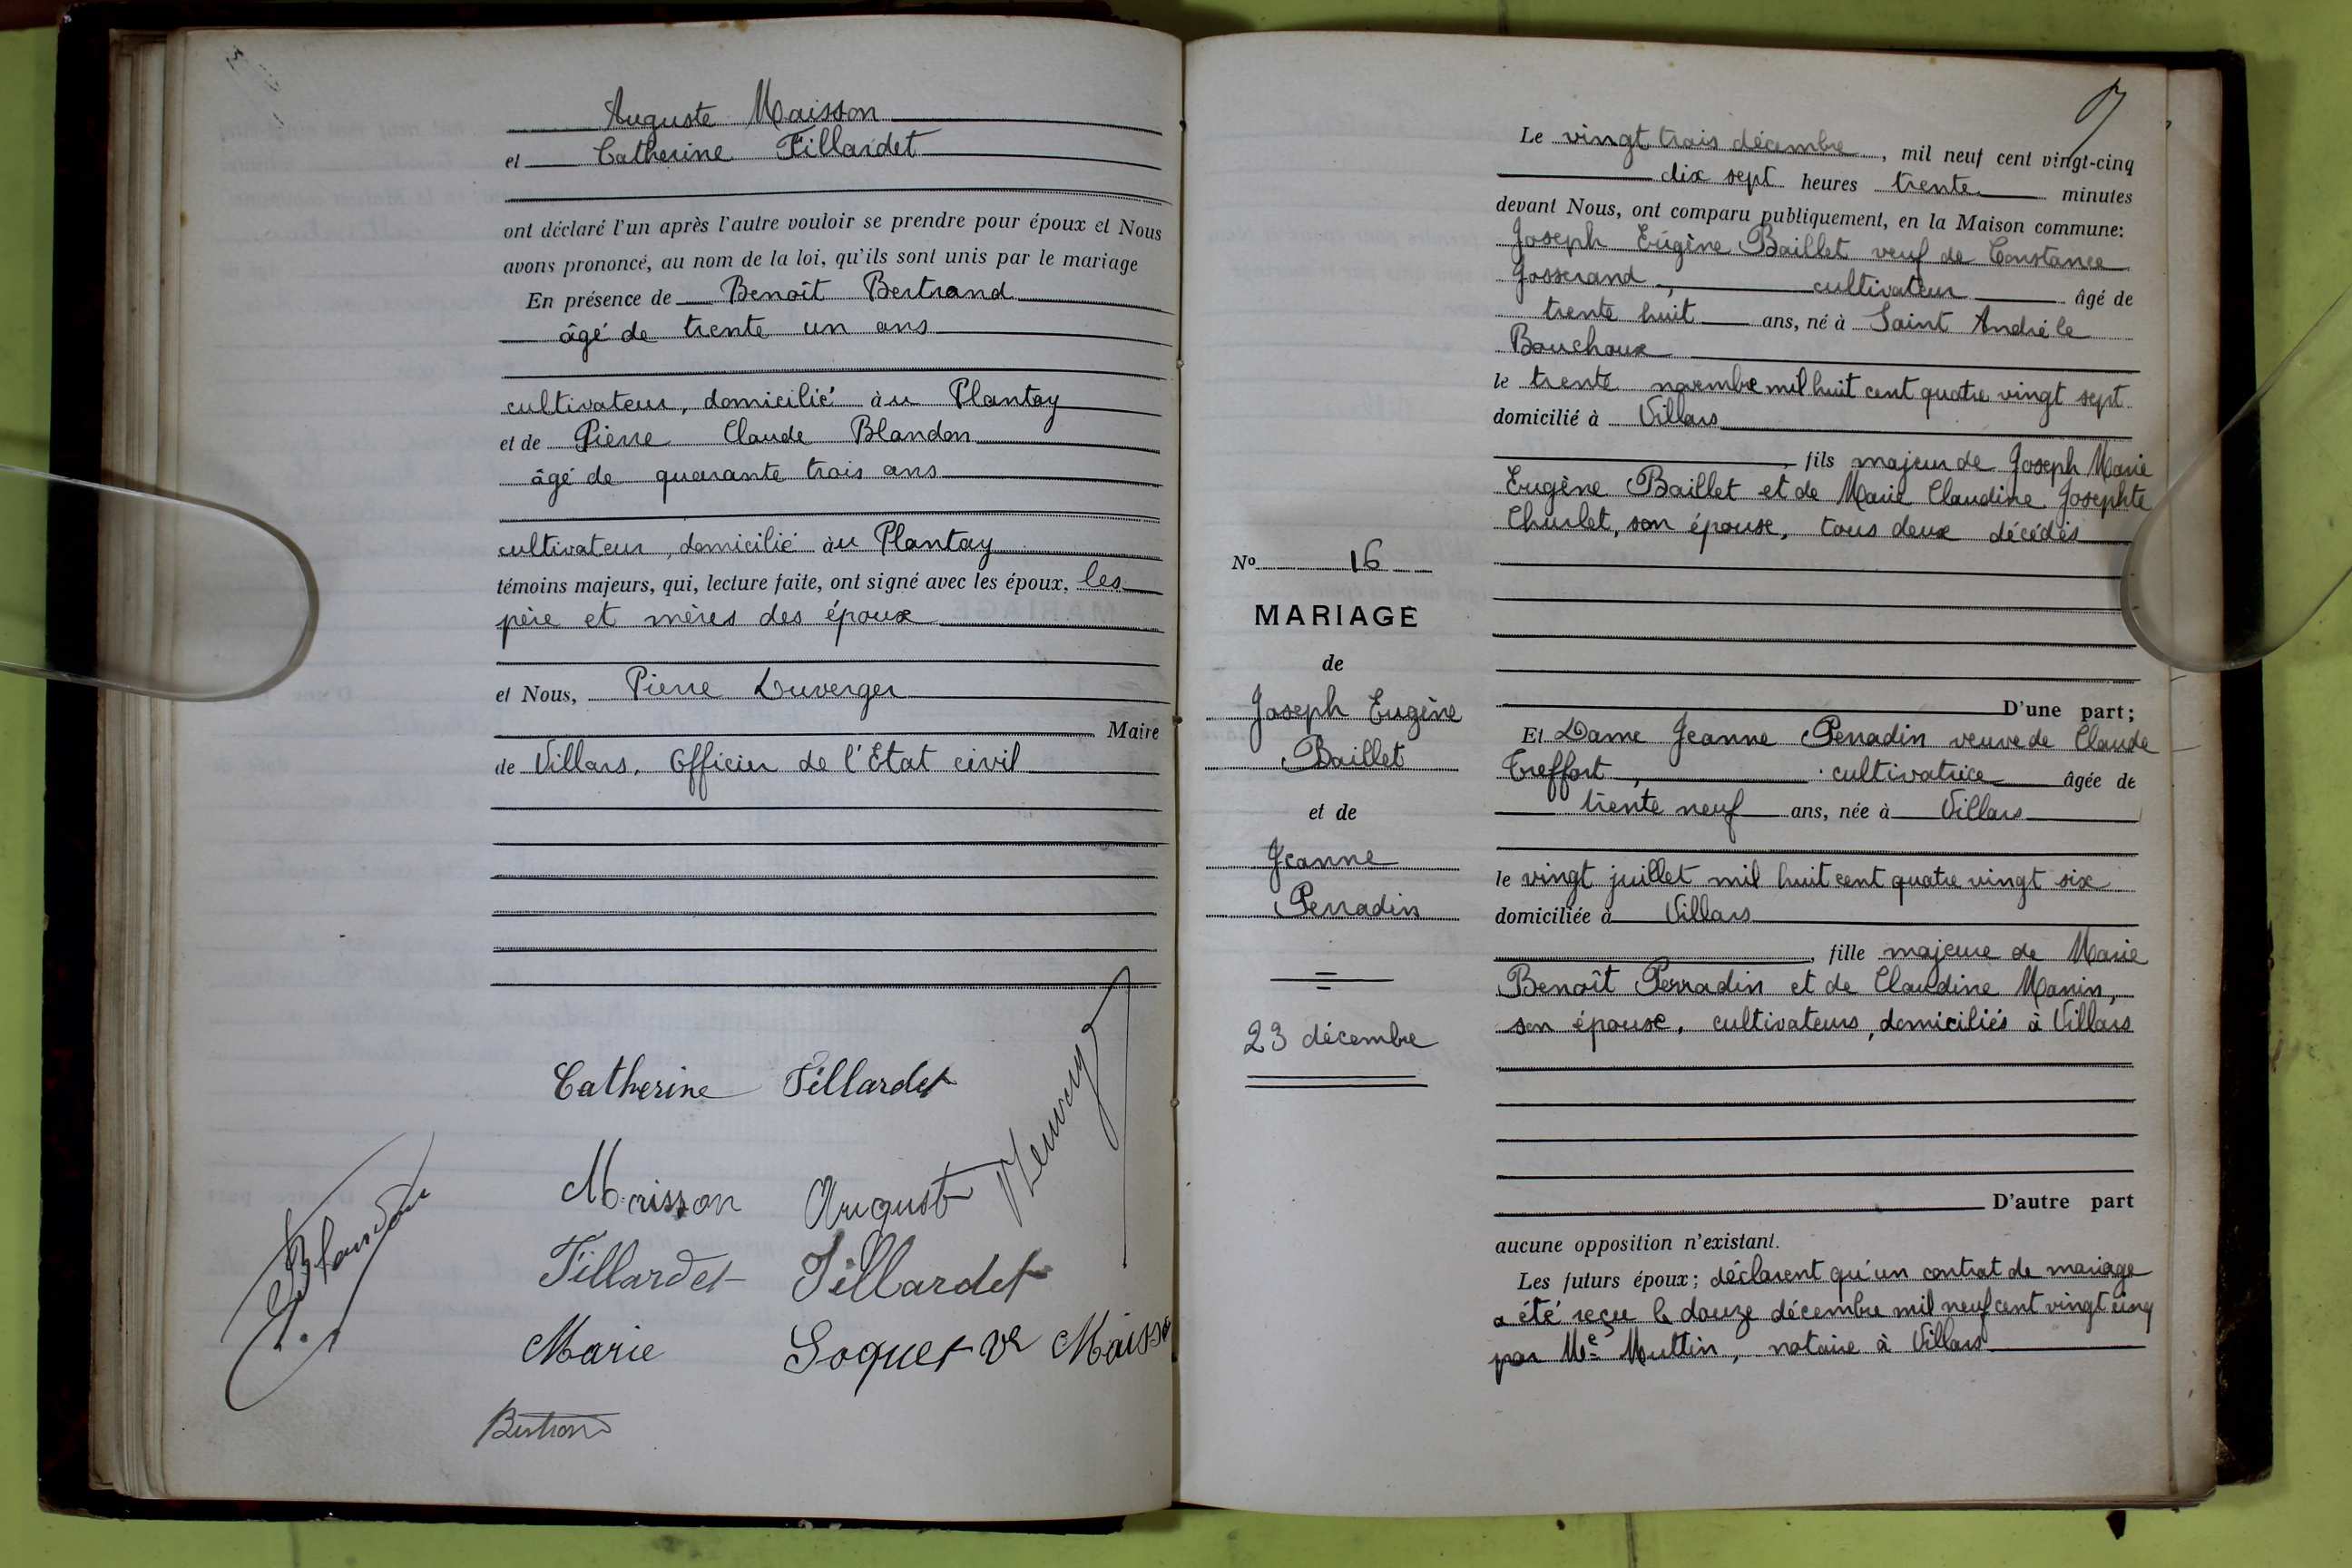 Auguste Maisson
et Catherine Tillardet
ont déclaré l'un après l'autre vouloir se prendre pour époux et Nous
avons prononcé, au nom de la loi, qu'ils sont unis par le mariage
En présence de Benoît Bertrand
âgé de trente un ans
cultivateur, domicilié àu Plantay
et de Pierre Claude Blandon
âgé de quarante trois ans
cultivateur, domicilié àu Plantay
témoins majeurs, qui, lecture faite, ont signé avec les époux, les
père et mères des époux
et Nous, Pierre Duverger
Maire
de Villars, Officier de l'Etat civil
Catherine Tillardet
Maisson August
Blandon
Tillardet Tillardet
Marie Soquet Ve Maisso
Bertrand
Le vingt trois décembre, mil neuf cent vingt-cinq
dix sept heures trente minutes
devant Nous, ont comparu publiquement, en la Maison commune:
Joseph Eugène Baillet veuf de Constance
Josserand, cultivateur âgé de
trente huit ans, né à Saint André le
Bouchoux
le trente novembre mil huit cent quatre vingt sept
domicilié à Villars
, fils majeur de Joseph Marie
Eugène Baillet et de Marie Claudine Josephte
Churlet, son épouse, tous deux décédés
No 16
MARIAGE
de
Joseph Eugène
Baillet
et de
Jeanne
Perradin
23 décembre
D'une part;
Et Dame Jeanne Perradin veuve de Claude
Treffort, cultivatrice âgée de
trente neuf ans, née à Villars
le vingt juillet mil huit cent quatre vingt six
domiciliée à Villars
, fille majeure de Marie
Benoît Perradin et de Claudine Manin,
son épouse, cultivateurs, domiciliés à Villars
D'autre part
aucune opposition n'existant.
Les futurs époux; déclarent qu'un contrat de mariage
a été reçu le douze décembre mil neuf cent vingt cinq
par Me Muttin, notaire à Villars